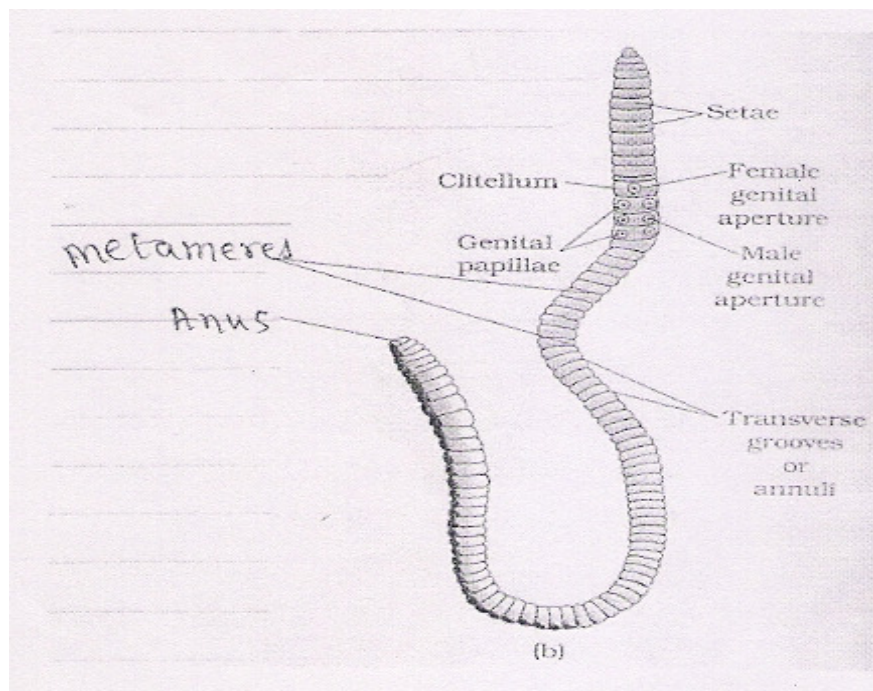 Setae
Clitellum
Female
genital
aperture
Genital
papillae
Male
genital
aperture
metameres
Anus
Transverse
grooves
or
annuli
(b)